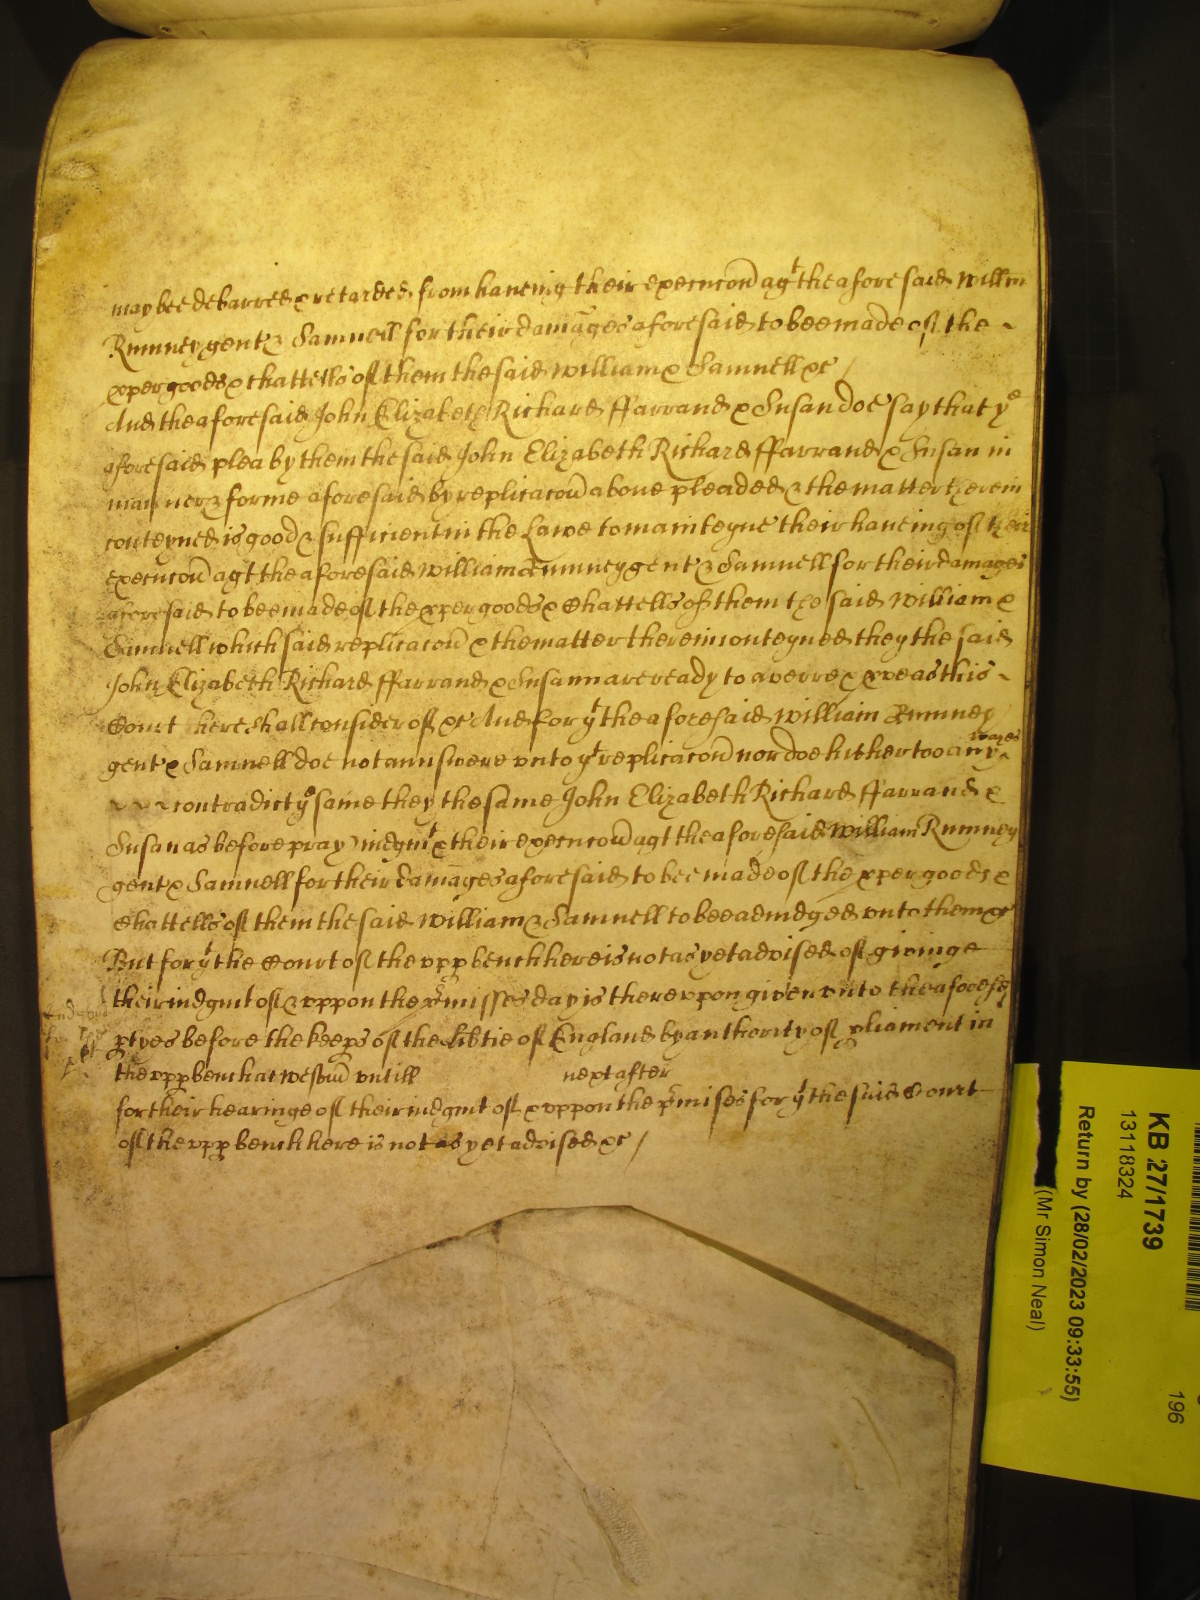 may bee debarred & retarded from haveing their execucon agt the aforesaid Willm
Rumney gent & Samuell for their damages aforesaid to bee made of the ~
pper goods & chattells of them the said William & Samuell &c /
And the aforesaid John Elizabeth Richard ffarrand & Susan doe say that ye
aforesaid plea by them the said John Elizabeth Richard ffarrand & Susan in
manner & forme aforesaid by replicacon above pleaded & the matter therein
conteyned is good & sufficient in the Lawe to mainteyne their haveing of their
execucon agt the aforesaid William Rumney gent & Samuell for their damages
aforesaid to bee made of the pper goods & Chattells of them the said William &
Samuell which said replicacon & the matter therein conteyned they the said
John Elizabeth Richard ffarrand & Susann are ready to averre & prove as this ~
Court here shall consider of &c And for yt the aforesaid William Rumney
gent & Samuell doe not answere unto yt replicacon nor doe hithertoo any wayes ~
~ ~ ~ contradict ye same they the same John Elizabeth Richard ffarrand &
Susan as before pray iudgmt & their execucon agt the aforesaid William Rumney
gent & Samuell for their damages aforesaid to bee made of the pper goods &
Chattells of them the said William & Samuell to bee adiudged unto them &c
But for yt the Court of the upp bench here is not as yet advised of giveinge
their iudgmt of & uppon the pmisses day is thereupon given unto the aforesd
ptyes before the keeps of the Libtie of England by authority of pliament in
the upp bench at Westm untill next after
for their hearinge of their iudgmt of & uppon the pmises for yt the said Court
of the upp bench here is not as yet advised &c /
KB 27/1739
13118324
Return by (28/02/2023 09:33:55)
(Mr Simon Neal)
196